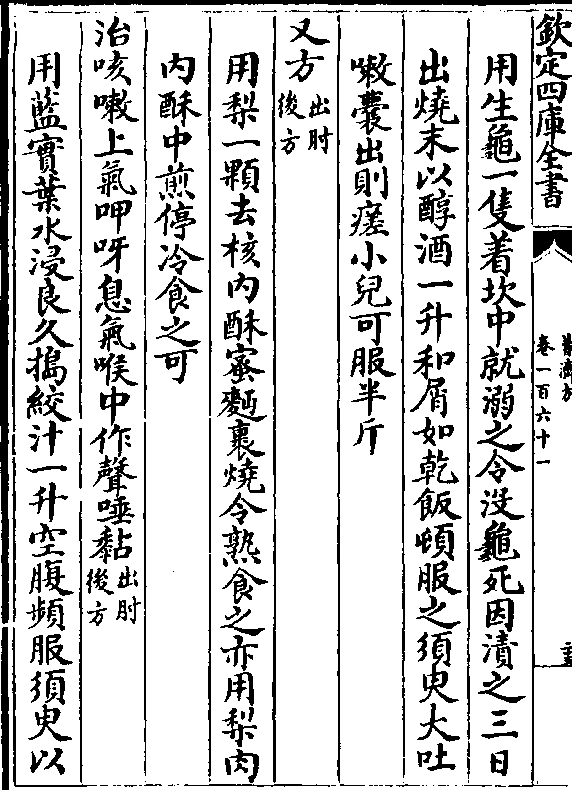 欽定四庫全書
普濟方
卷一百六十一
用生龜一隻着坎中就溺之令没龜死因漬之三日
出燒末以醇酒一升和屑如乾飯頓服之須臾大吐
嗽囊出則瘥小兒可服半斤
又方出肘後方
用梨一顆去核内酥蜜麪裹燒令熟食之亦用梨肉
内酥中煎停冷食之可
治咳嗽上氣呷呀息氣喉中作聲唾黏出肘後方
用藍實葉水浸良久搗絞汁一升空腹頻服須臾以